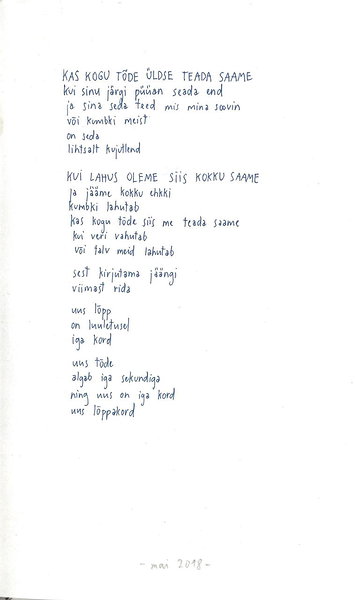 KAS KOGU TÕDE ÜLDSE TEADA SAAME
kui sinu järgi püüan seada end
ja sina seda teed mis mina soovin
või kumbki meist
on seda
lihtsalt kujutlend
KUI LAHUS OLEME SIIS KOKKU SAAME
ja jääme kokku ehkki
kumbki lahutab
kas kogu tõde siis me teada saame
kui veri vahutab
või talv meid lahutab
sest kirjutama jäängi
viimast rida
uus lõpp
on luuletusel
iga kord
uus tõde
algab iga sekundiga
ning uus on iga kord
uus lõppakord
- mai 2018 -